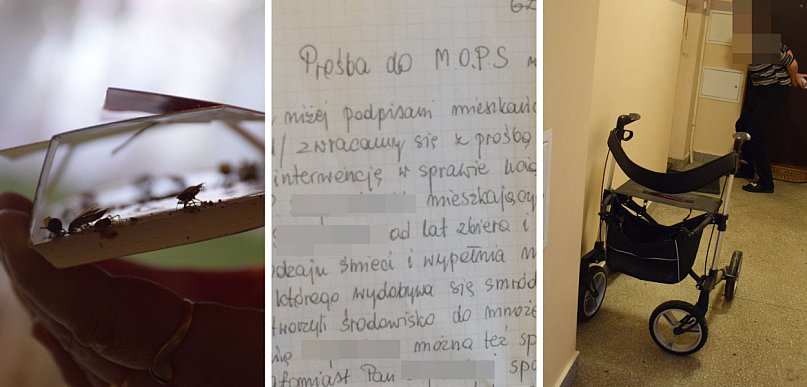 Prośba do M.O.P.S
niżej podpisani mieszkańc
zwracamy się z prośbą
interwencję w sprawie
mieszkający
od lat zbiera i
odzaju śmieci i wypełnia m
którego wydobywa się smród
tworzyli środowisko do mnoże
można też sp
tomiast Pan spo